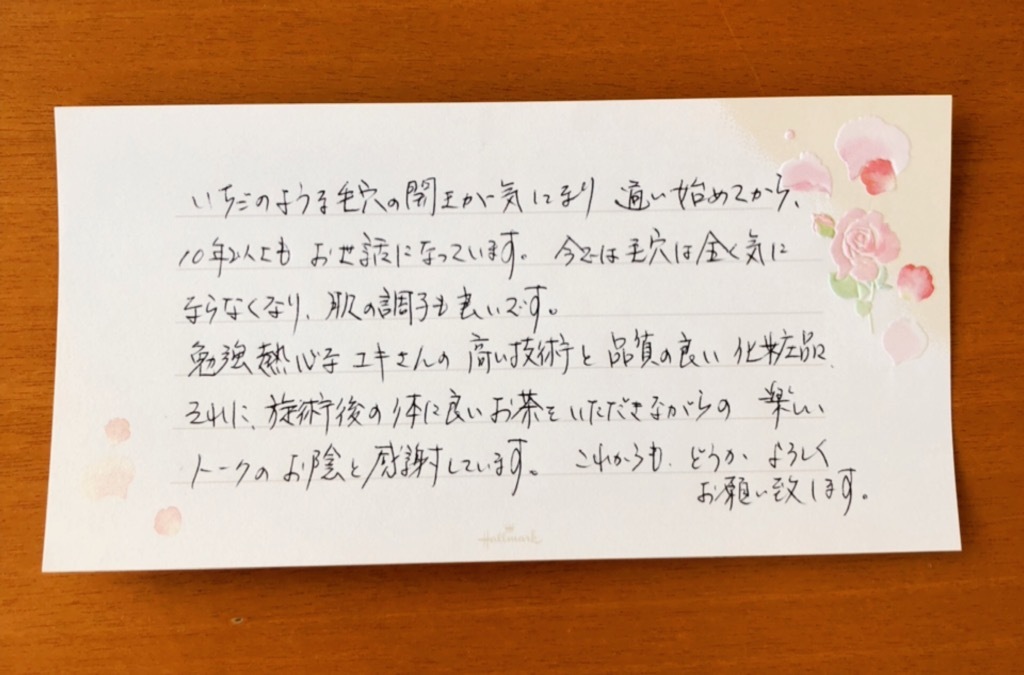 いちごのような毛穴の開きが気になり 通い始めてから、
10年以上も お世話になっています。 今では毛穴は全く気に
ならなくなり、肌の調子も良いです。
勉強熱心な ユキさんの 高い技術と 品質の良い 化粧品、
それに、施術後の体に良いお茶をいただきながらの 楽しい
トークのお陰と感謝しています。 これからも、どうか よろしく
お願い致します。
Hallmark